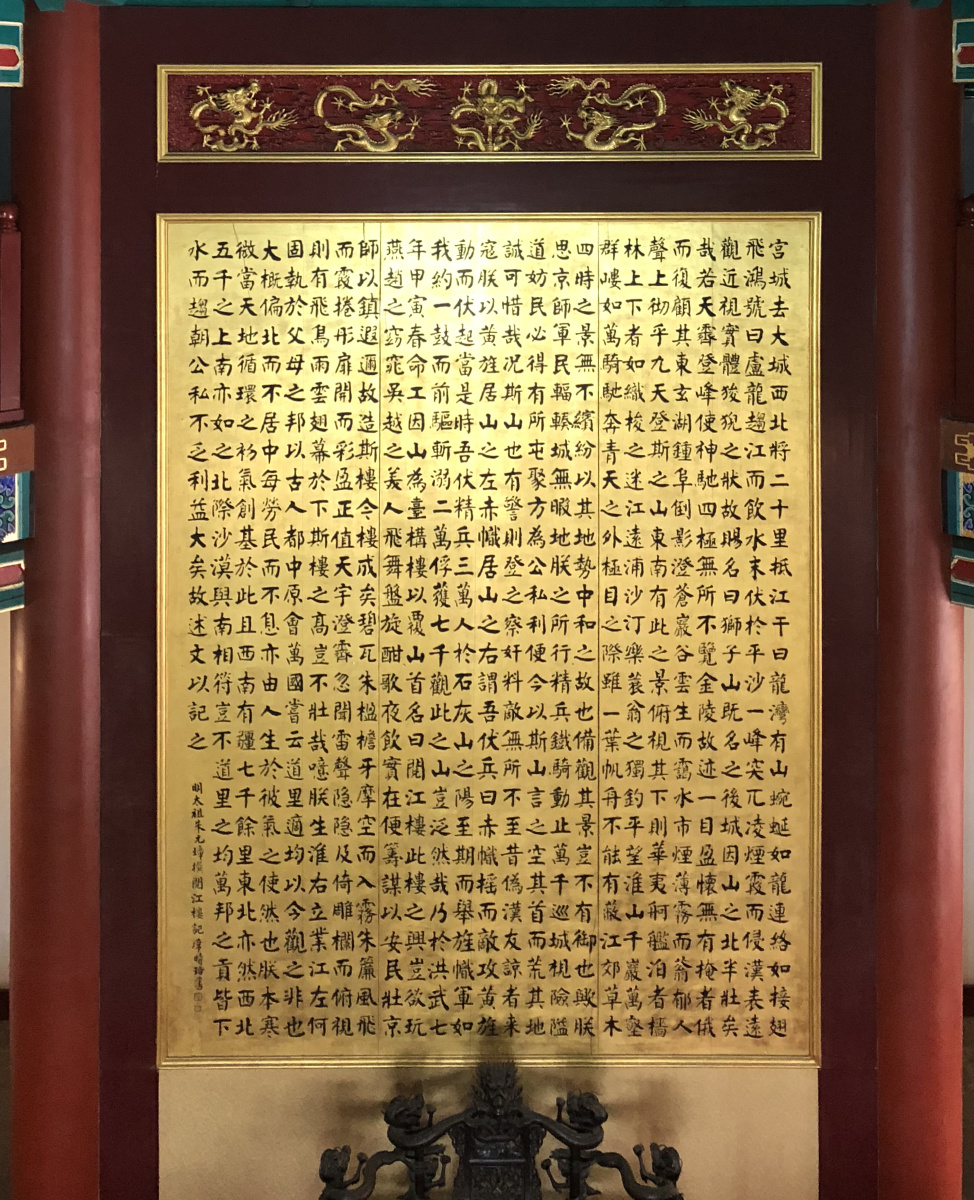 宮城去大城西北將二十里抵江干曰龍灣有山蜿蜒如龍連絡如接翅
飛鴻號曰盧龍趨江而飲水末伏於平沙一峰突兀凌煙霞而侵漢表遠
觀近視實體狻猊之狀故賜名曰獅子山既名之後城因山之北半壯矣
哉若天霽登峰使神馳四極無所不覽金陵故迹一目盈懷無有掩者俄
而復顧其東玄湖鍾阜倒影澄蒼巖谷雲生而靄水市煙薄霧而蓊郁人
聲上彻乎九天登斯之山東南有此之景俯視其下則華夷舸艦泊者檣
林上下者如織梭之迷江遠浦沙汀樂蓑翁之獨釣平望淮山千巖萬壑
群嶁如萬騎馳奔青天之外極目之際雖一葉帆舟不能有蔽江郊草木
四時之景無不繽紛以其地勢中和之故也備觀其景豈不有御也歟朕
思京師軍民輻輳城無暇地朕之所行精兵鐵騎動止萬千巡城視險隘
道妨民必得有所屯聚方為公私利便今以斯山言之空其首而荒其地
誠可惜哉况斯山也有警則登之察奸料敵無所不至昔偽漢友諒者來
寇朕以黃旌居山之左赤幟居山之右謂吾伏兵曰赤幟摇而敵攻黃旌
動而伏起當是時吾伏精兵三萬人於石灰山之陽至期而舉旌幟軍如
我約一鼓而前驅斬溺二萬俘獲七千觀此之山豈泛然哉乃於洪武七
年甲寅春命工因山為臺構樓以覆山首名曰閱江樓此樓之興豈欲玩
燕趙之窈窕吳越之美人飛舞盤旋酣歌夜飲實在便籌謀以安民壯京
師以鎮遐邇故造斯樓今樓成矣碧瓦朱楹檐牙摩空而入霧朱簾風飛
而霞捲彤扉開而彩盈正值天宇澄霽忽聞雷聲隐隐及倚雕欄而俯視
則有飛鳥雨雲翅幕於下斯樓之高豈不壯哉噫朕生淮右立業江左何
固執於父母之邦以古人都中原會萬國嘗云道里適均以今觀之非也
大概偏北而不居中每勞民而不息亦由人生於彼氣之使然也朕本寒
微當天地循環之初氣創基於此且西南有疆七千餘里東北亦然西北
五千之上南亦如之北際沙漠與南相符豈不道里之均萬邦之貢皆下
水而趨朝公私不乏之利益大矣故述文以記之
明太祖朱元璋撰閱江樓記